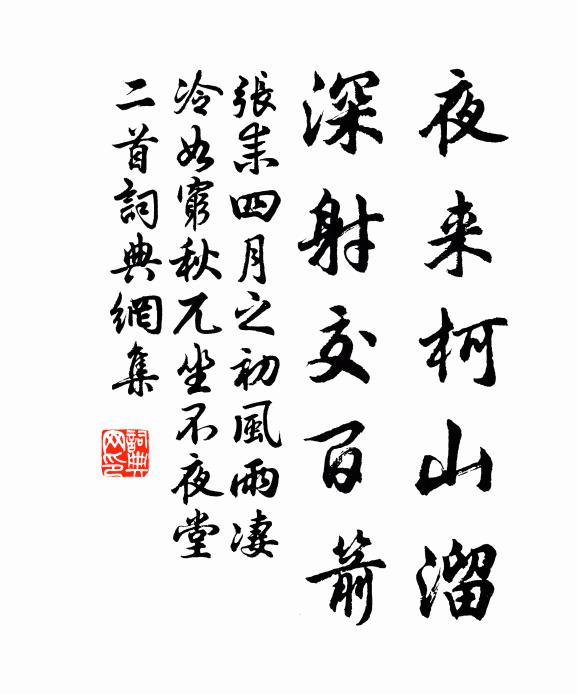 夜来柯山溜
深射交百箭
張耒四月之初風雨凄
冷如窮秋兀坐不夜堂
二首詞典網集
詞典
网印